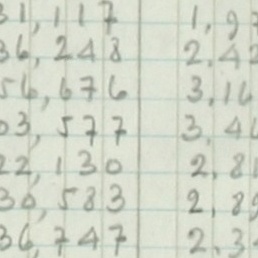 31,117 1.97
36,248 2.42
56,676 3.16
03,577 3.40
22,130 2.81
30,583 2.89
36,747 2.34